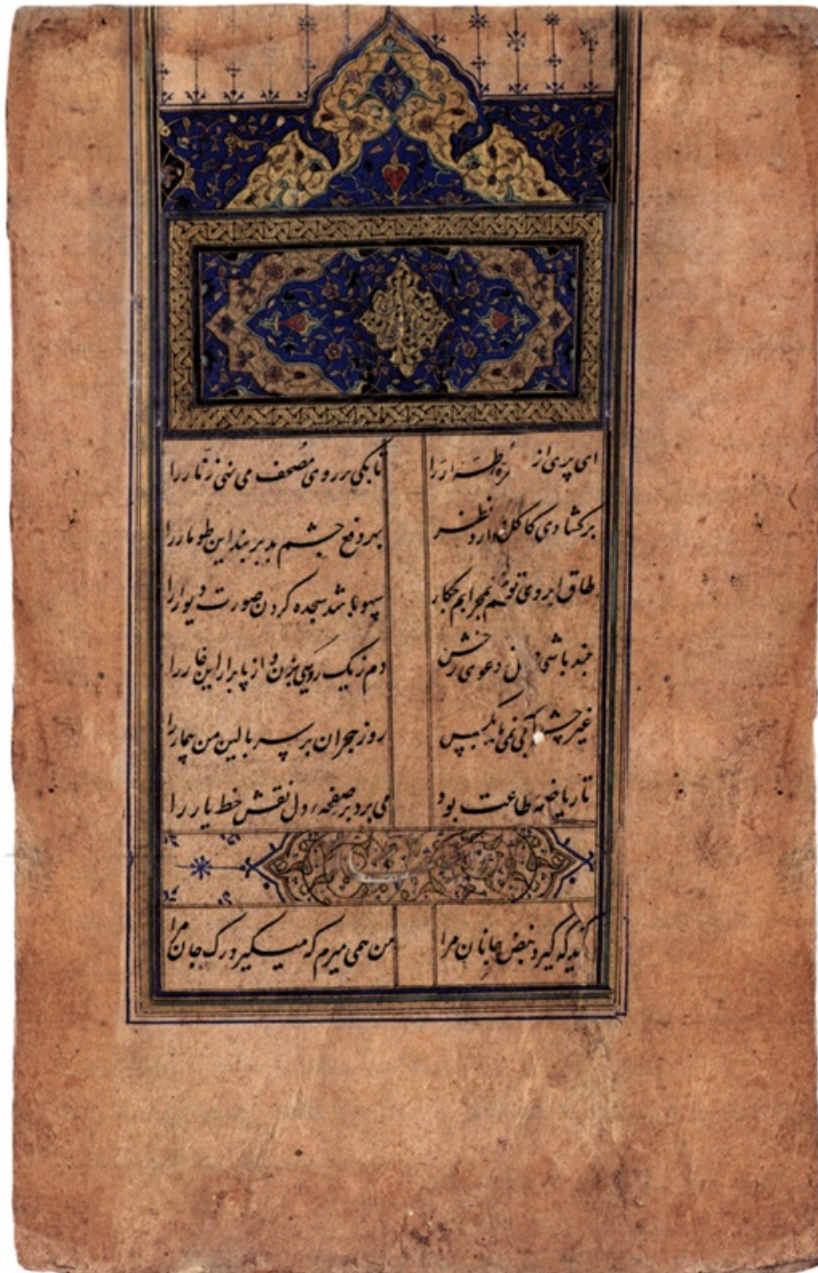 ای پری از طره طرار را تا بکی بر روی مصحف می نهی زنار را
برکشادی کاکل دارد نظر بهر دفع چشم بد بر بند این طومار را
طاق ابروی تو سهو باشد سجده کردن صورت دیوار را
چند باشی دعوی رخش دم زیک رنگی بزن و از پا برار این خار را
غیر چشم آبی نمی روز هجران بر سر بالین من بیمار را
تا ریاض طاعت بود می برد بر صفحه دل نقش خط یار را
که گیرد نبض جانان مرا من همی میرم که میگیرد رک جان مرا